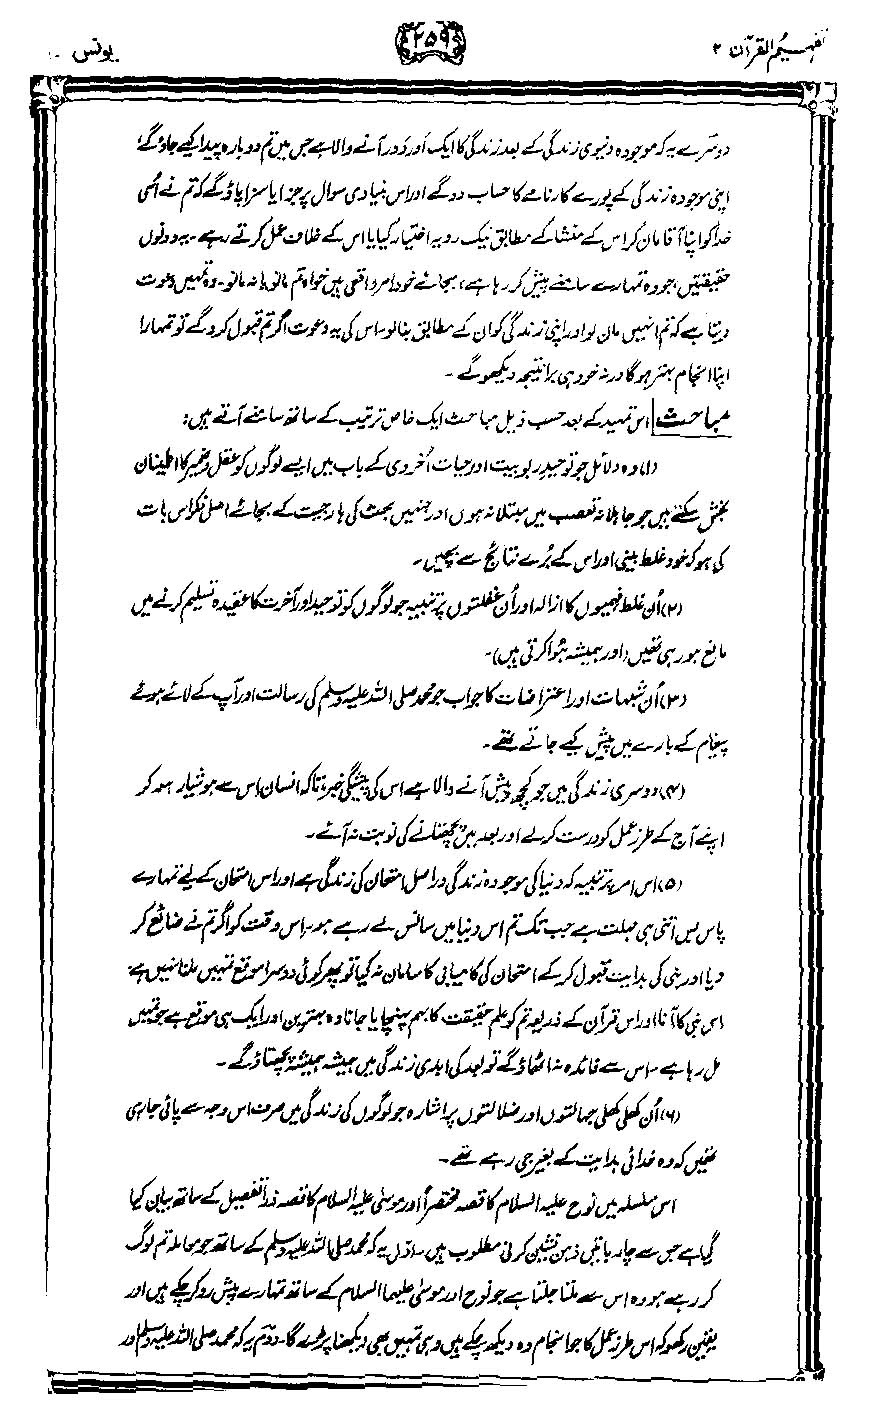 تفہیم القرآن ۲
۲۵۹
یونس ۱۰
دوسرے یہ کہ موجودہ دنیوی زندگی کے بعد زندگی کا ایک اَور دَور آنے والا ہے جس میں تم دوبارہ پیدا کیے جاؤ گے،
اپنی موجودہ زندگی کے پورے کارنامے کا حساب دو گے اور اس بنیادی سوال پر جزا یا سزا پاؤ گے کہ تم نے اُسی
خدا کو اپنا آقا مان کر اس کے منشا کے مطابق نیک رویہ اختیار کیا یا اس کے خلاف عمل کرتے رہے۔ یہ دونوں
حقیقتیں، جو وہ تمہارے سامنے پیش کر رہا ہے، بجائے خود امر واقعی ہیں خواہ تم مانو یا نہ مانو۔ وہ تمہیں دعوت
دیتا ہے کہ تم انہیں مان لو اور اپنی زندگی کو ان کے مطابق بنا لو۔ اس کی یہ دعوت اگر تم قبول کرو گے تو تمہارا
اپنا انجام بہتر ہوگا ورنہ خود ہی برا نتیجہ دیکھو گے۔
مباحث اس تمہید کے بعد حسب ذیل مباحث ایک خاص ترتیب کے ساتھ سامنے آتے ہیں:
(۱) وہ دلائل جو توحیدِ ربوبیت اور حیات اُخروی کے باب میں ایسے لوگوں کو عقل و ضمیر کا اطمینان
بخش سکتے ہیں جو جاہلانہ تعصب میں مبتلا نہ ہوں اور جنہیں بحث کی ہار جیت کے بجائے اصل فکر اس بات
کی ہو کہ خود غلط بینی اور اس کے بُرے نتائج سے بچیں۔
(۲) اُن غلط فہمیوں کا ازالہ اور اُن غفلتوں پر تنبیہ جو لوگوں کو توحید اور آخرت کا عقیدہ تسلیم کرنے میں
مانع ہو رہی تھیں (اور ہمیشہ ہُوا کرتی ہیں)۔
(۳) اُن شبہات اور اعتراضات کا جواب جو محمد صلی اللہ علیہ وسلم کی رسالت اور آپ کے لائے ہوئے
پیغام کے بارے میں پیش کیے جاتے تھے۔
(۴) دوسری زندگی میں جو کچھ پیش آنے والا ہے اس کی پیشگی خبر، تاکہ انسان اس سے ہوشیار ہو کر
اپنے آج کے طرز عمل کو درست کر لے اور بعد میں پچھتانے کی نوبت نہ آئے۔
(۵) اس امر پر تنبیہ کہ دنیا کی موجودہ زندگی دراصل امتحان کی زندگی ہے اور اس امتحان کے لیے تمہارے
پاس بس اتنی ہی مہلت ہے جب تک تم اس دنیا میں سانس لے رہے ہو۔ اس وقت کو اگر تم نے ضائع کر
دیا اور نبی کی ہدایت قبول کر کے امتحان کی کامیابی کا سامان نہ کیا تو پھر کوئی دوسرا موقع تمہیں ملنا نہیں ہے۔
اس نبی کا آنا اور اس قرآن کے ذریعہ تم کو علم حقیقت کا بہم پہنچایا جانا وہ بہترین اور ایک ہی موقع ہے جو تمہیں
مل رہا ہے۔ اس سے فائدہ نہ اٹھاؤ گے تو بعد کی ابدی زندگی میں ہمیشہ ہمیشہ پچھتاؤ گے۔
(۶) اُن کھلی کھلی جہالتوں اور ضلالتوں پر اشارہ جو لوگوں کی زندگی میں صرف اس وجہ سے پائی جا رہی
تھیں کہ وہ خدائی ہدایت کے بغیر جی رہے تھے۔
اس سلسلہ میں نوح علیہ السلام کا قصہ مختصراً اور موسیٰ علیہ السلام کا قصہ ذرا تفصیل کے ساتھ بیان کیا
گیا ہے جس سے چار باتیں ذہن نشین کرنی مطلوب ہیں۔ اوّل یہ کہ محمد صلی اللہ علیہ وسلم کے ساتھ جو معاملہ تم لوگ
کر رہے ہو وہ اس سے ملتا جلتا ہے جو نوح اور موسیٰ علیہما السلام کے ساتھ تمہارے پیش رو کر چکے ہیں اور
یقین رکھو کہ اس طرز عمل کا جو انجام وہ دیکھ چکے ہیں وہی تمہیں بھی دیکھنا پڑے گا۔ دوم یہ کہ محمد صلی اللہ علیہ وسلم اور